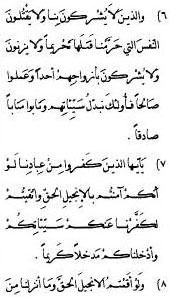 ٦) والذين لا يشركون بنا ولا يقتلون
النفس التي حرّمنا قتلها تحريماً ولا يزنون
ولا يشركون بأزواجهم أحداً وعملوا
صالحاً فأولئك نبدّل سيّئاتهم ومابوا متاباً
صادقاً .
٧) يأيها الذين كفروا من عبادنا لو
أنكم آمنتم بالإنجيل الحقّ واتّقيتم
لكفّرنا عنكم سيّئاتكم
وأدخلناكم مدخلاً كريماً .
٨) ولو أقمتم الإنجيل الحقّ وما أنزلنا من